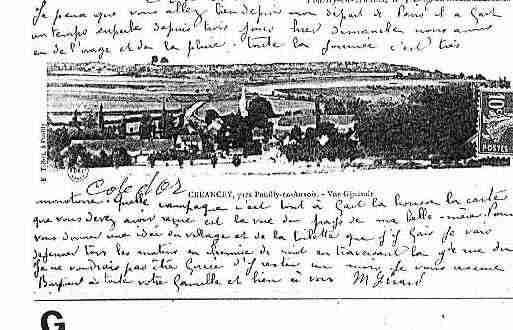 Je pense que vous allez bien depuis mon départ de Paris il a fait
un temps superbe depuis trois jours hier dimanche nous avons
eu de l'orage et de la pluie. toute la journée c'est très
CREANCEY, près Pouilly-en-Auxois. - Vue Générale
10
POSTES
Côte d'Or
monotone. quelle campagne c'est tout à fait la carte
que vous devez avoir reçue est la vue du pays de ma belle-mère. Pour
vous donner une idée du village et de la toilette que j'y fais je vais
déjeuner tous les matins en chemise de nuit en traversant la
Je ne voudrais pas être forcée d'y rester un mois. je vous
à toute votre famille et bien à vous M
G